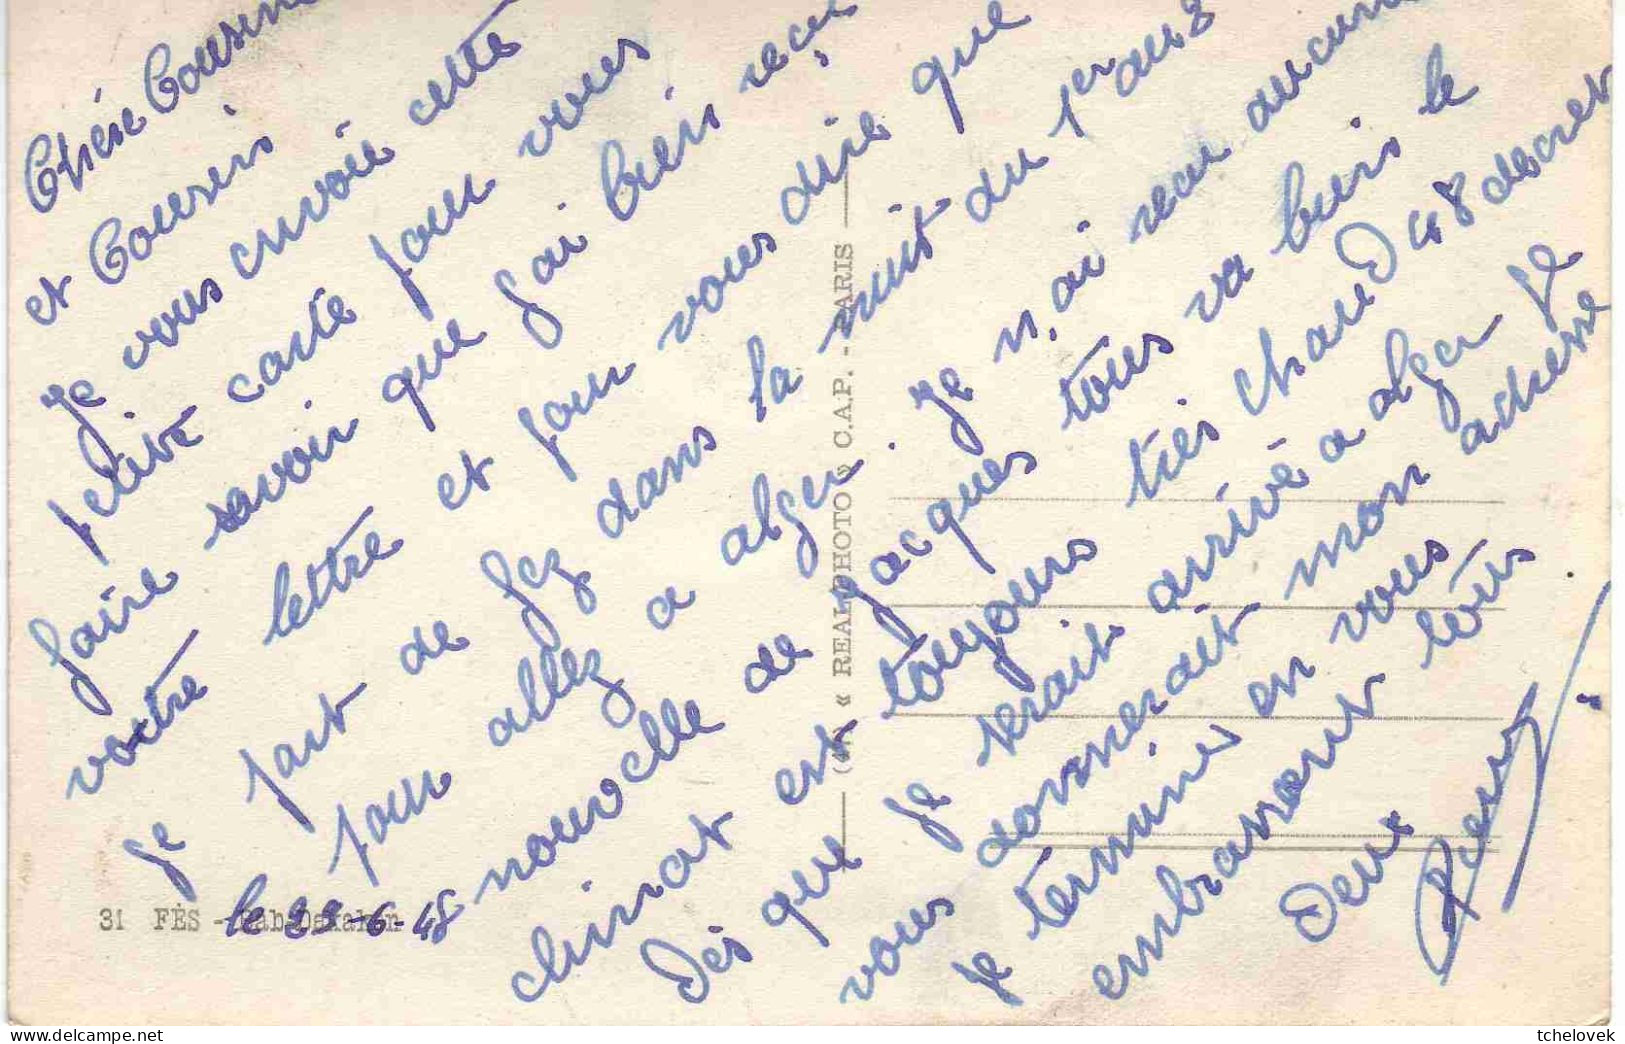 Chère Cousine
et Cousin
Je vous envoie cette
petite carte pour vous
faire savoir que j'ai bien reçu
votre lettre et pour vous dire que
Je part de fez dans la nuit du 1er au 2
pour allez a alger. Je n'ai reçu aucune
nouvelle de Jacques tous va bien le
climat est toujours très chaud 48 degret
Dès que je serait arrivé a alger Je
vous donnerait mon adresse
Je termine en vous
embrassant tous
Deux
(4) « REAL-PHOTO » C.A.P. - PARIS
31 FÈS - Bab-Dekaken
le 29-6-48